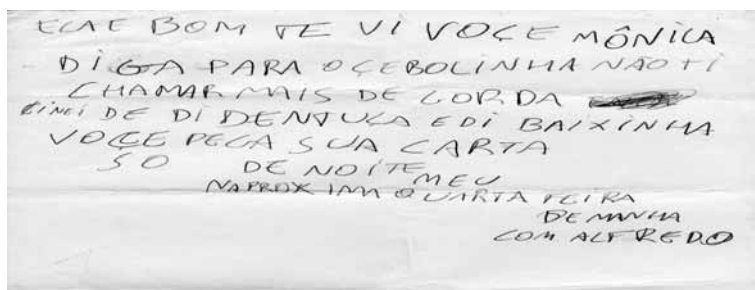 ECAE BOM TE VI VOCE MÔNICA
DIGA PARA O CEBOLINHA NÃO TI
CHAMAR MAIS DE GORDA
DE DI DENTUÇA E DI BAIXINHA
VOCE PEGA SUA CARTA
SO DE NOITE MEU
NAPROXIMA QUARTA FEIRA
DE MANHA
COM ALFREDO